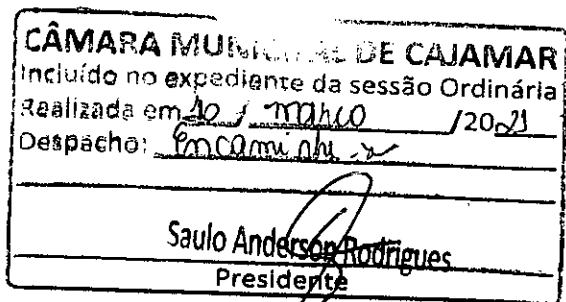 CÂMARA MUNICIPAL DE CAJAMAR
Incluído no expediente da sessão Ordinária
Realizada em 10 / março /2021
Despacho: Encaminhe-se
Saulo Anderson Rodrigues
Presidente